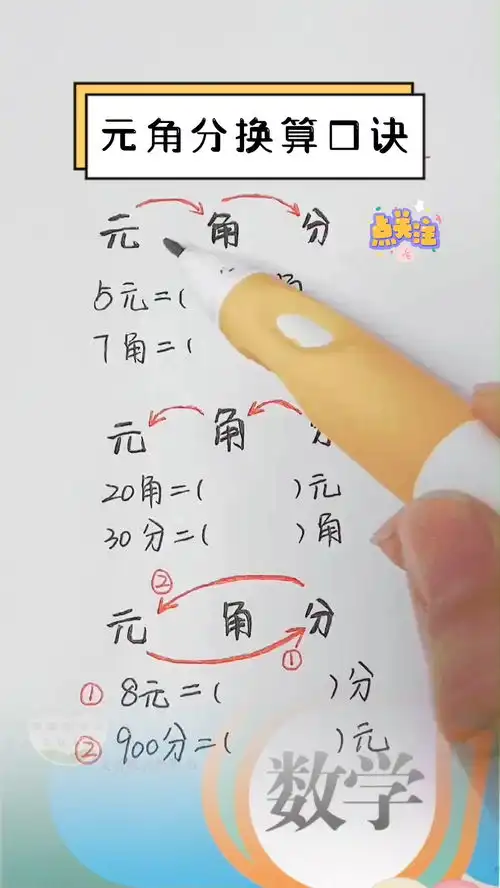 元角分换算口诀
元 角 分
点关注
5元=( 角
7角=(
元 角 分
20角=( )元
30分=( )角
元 角 分
② ①
① 8元=( )分
② 900分=( )元
数学